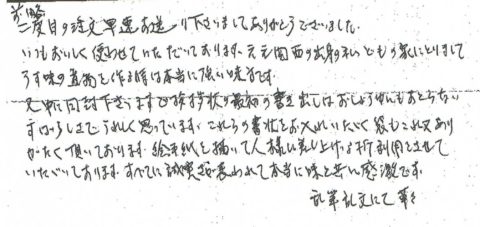 前略
二度目の注文早速お送り下さいましてありがとうございました。
いつもおいしく使わせていただいております。元々関西の出身の私ども家にとりまして
うす味の煮物を作る時は本当に強い味方です。
文中に同封下さいます御挨拶状の最初の書き出しはおしょうゆにもおとらない
すばらしさでうれしく思っています。これらの書状をお入れいただく袋もこれ又あり
がたく頂いております。絵手紙を描いて人様に差し上げる折利用させて
いただいております。すべてに誠実さ表われて本当に味と共に感激です。
乱筆乱文にて